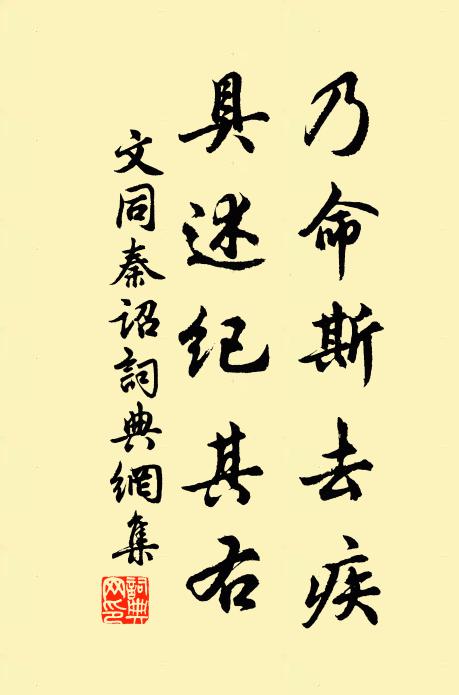 乃命斯去疾
具述纪其右
文同秦诏詞典網集
詞典
网印